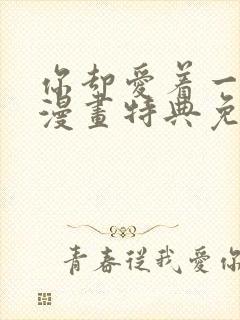 你却愛着一
漫畫特典免
青春從我愛你